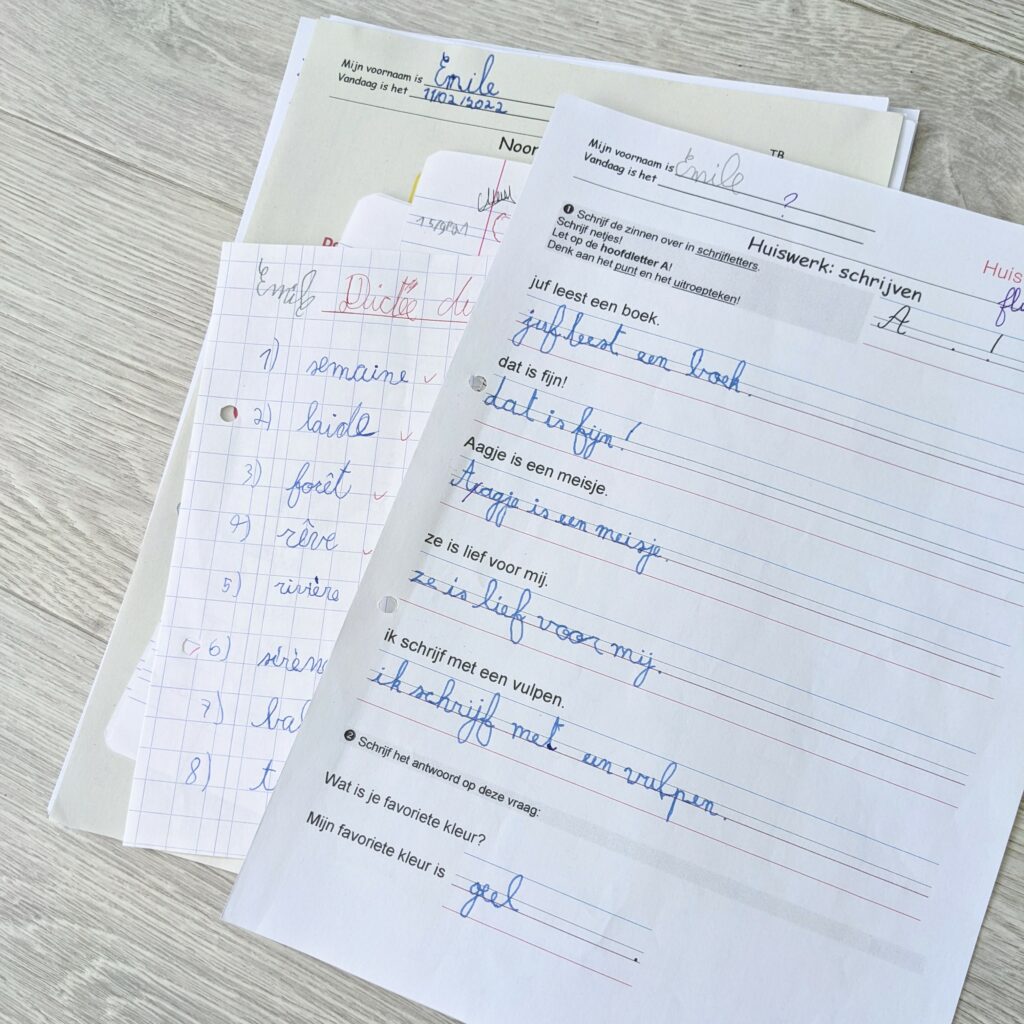 Mijn voornaam is Emile
Vandaag is het 11/02/2022
Noor
TB
15/9/21
Emile Dictée du
1) semaine
2) laide
3) forêt
4) rêve
5) rivière
6)
7)
8)
Mijn voornaam is Emile
Vandaag is het
?
Huiswerk: schrijven
Huis
1 Schrijf de zinnen over in schrijfletters.
Schrijf netjes!
Let op de hoofdletter A!
Denk aan het punt en het uitroepteken!
A . !
juf leest een boek.
juf leest een boek.
dat is fijn!
dat is fijn!
Aagje is een meisje.
Aagje is een meisje.
ze is lief voor mij.
ze is lief voor mij.
ik schrijf met een vulpen.
ik schrijf met een vulpen.
2 Schrijf het antwoord op deze vraag:
Wat is je favoriete kleur?
Mijn favoriete kleur is geel.